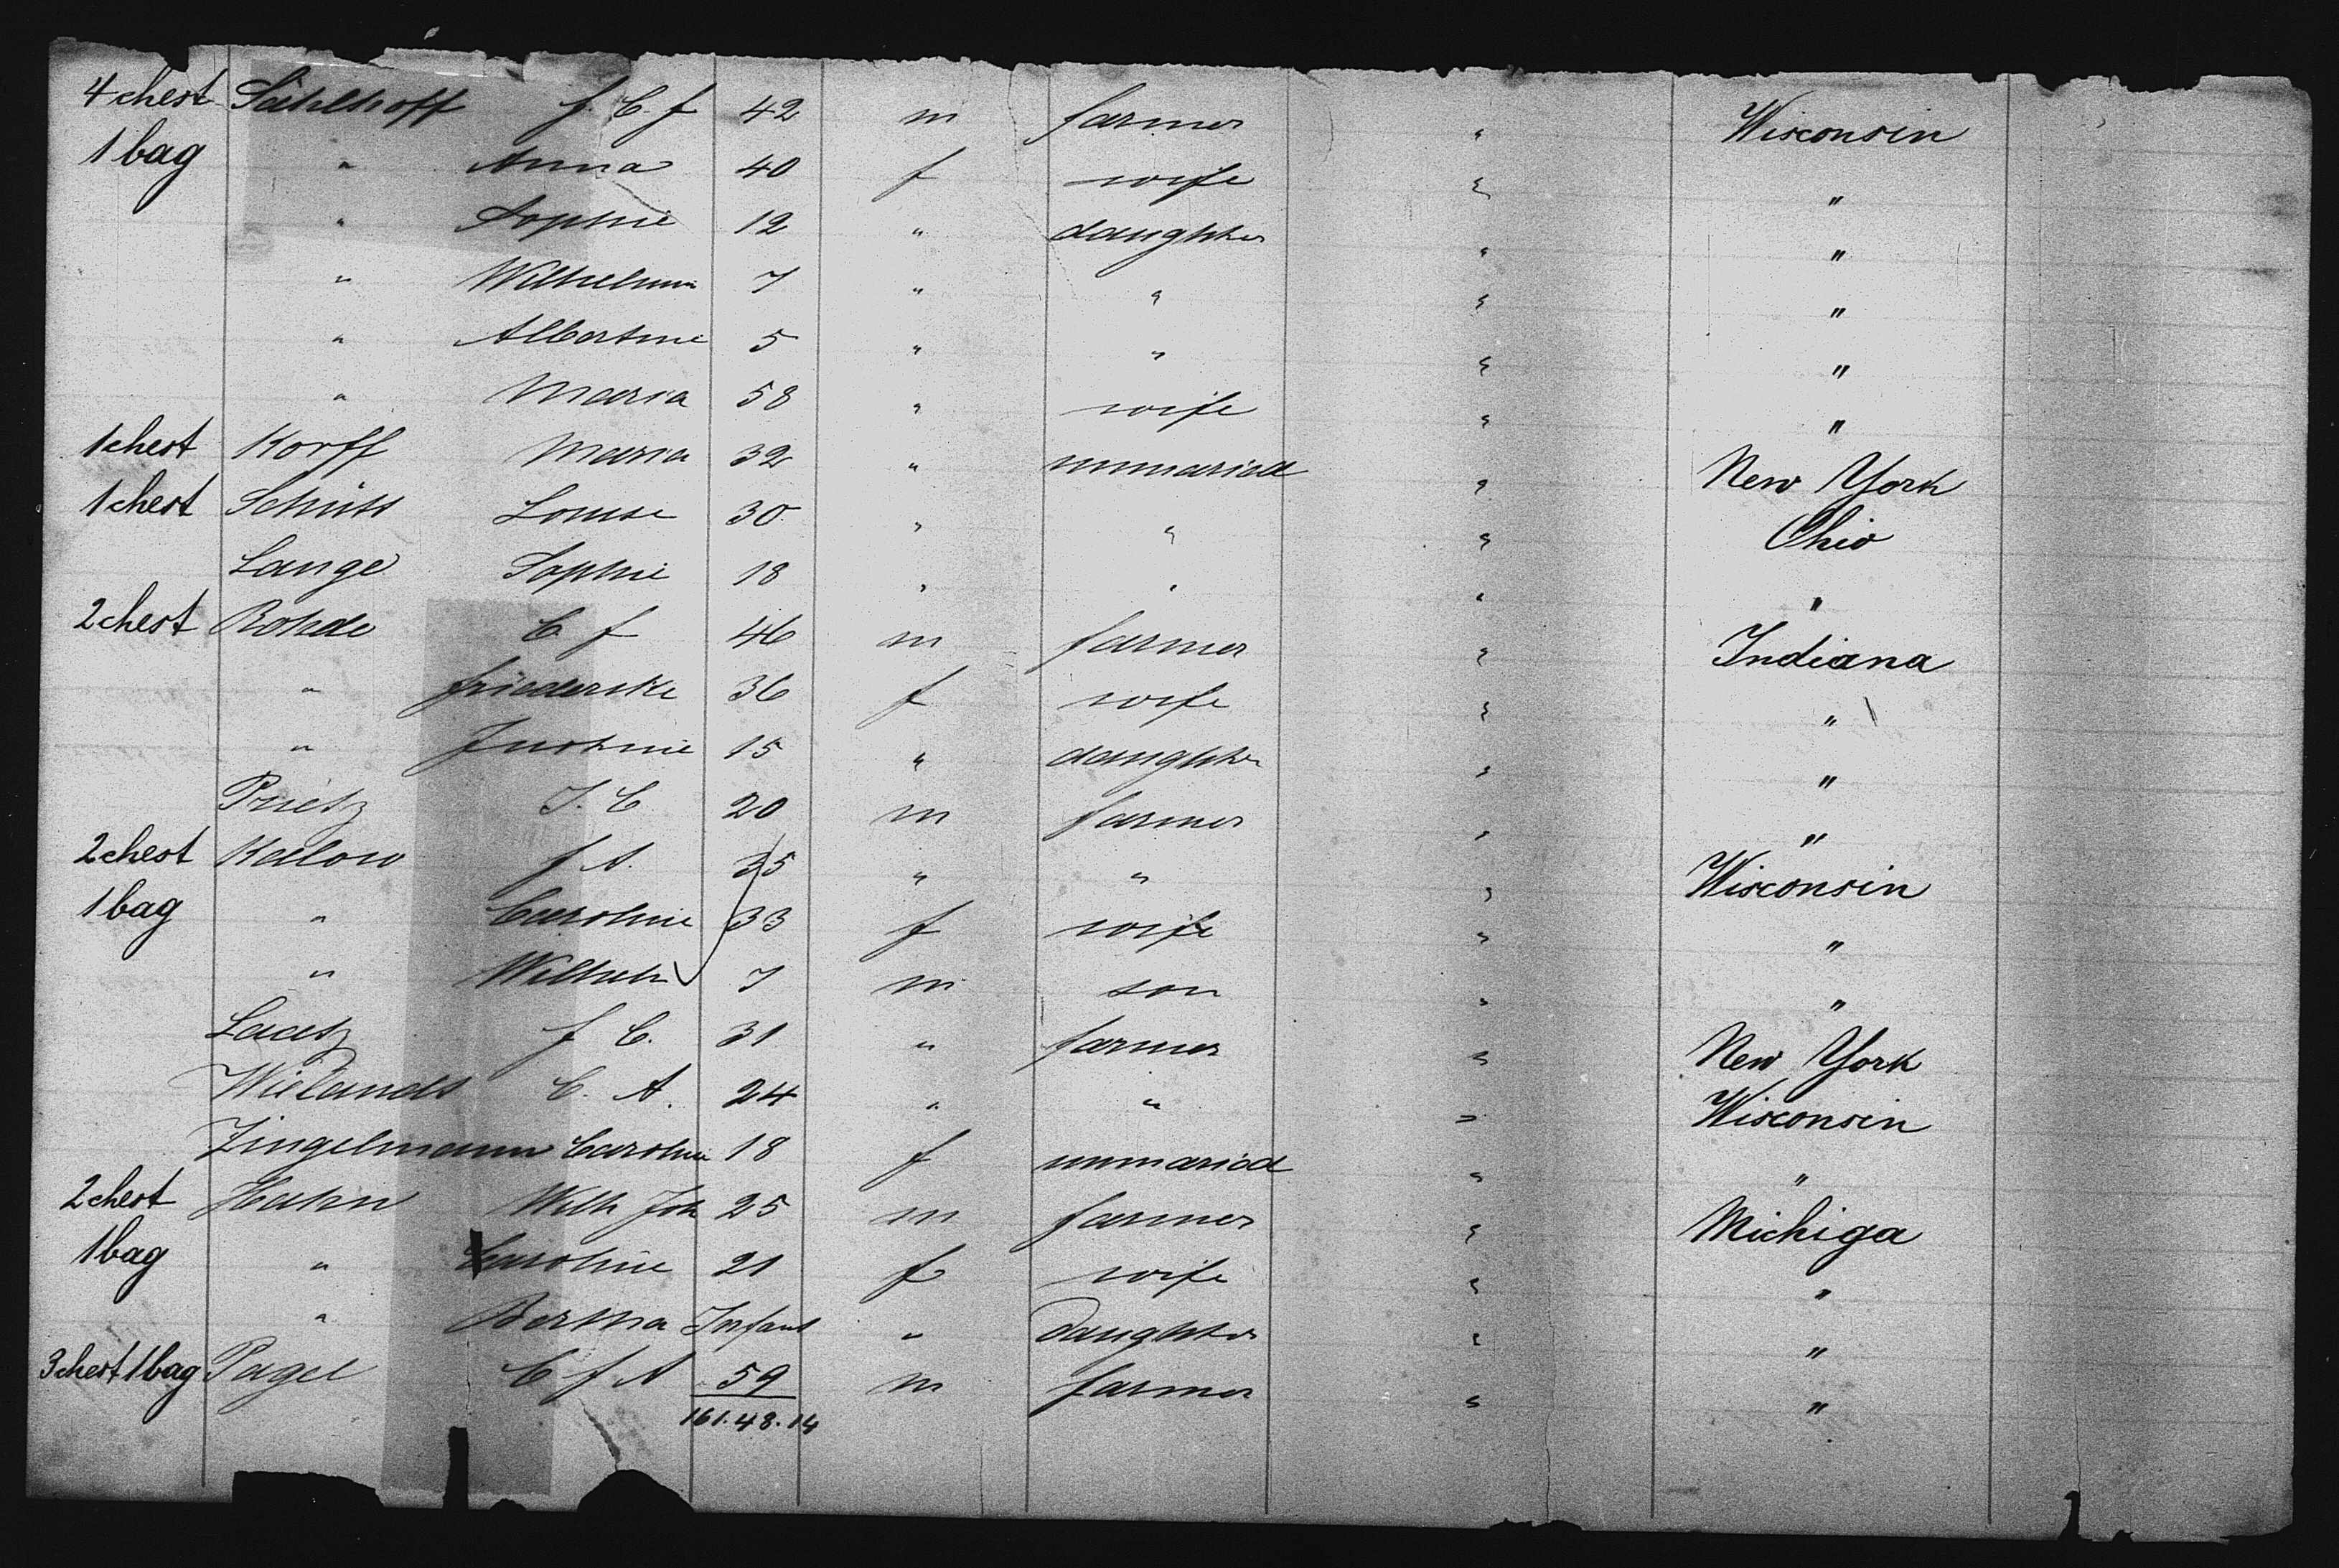 4 chest Sahlhoff f. C. f 42 m farmer " Wisconsin
1 bag " Anna 40 f wife " "
" Sophie 12 " daughter " "
" Wilhelmin 7 " " " "
" Albertine 5 " " " "
" Maria 58 " wife " "
1 chest Korff Maria 32 " unmaried " New York
1 chest Schütt Louise 30 " " " Ohio
Lange Sophie 18 " " " "
2 chest Rohde C f 46 m farmer " Indiana
" friederike 36 f wife " "
" Justine 15 " daughter " "
Prietz J. C. 20 m farmer " "
2 chest Kalow f A. 35 " " " Wisconsin
1 bag " Caroline 33 f wife " "
" Wilhelm 7 m son " "
Laatz f C. 31 " farmer " New York
Wielands C. A. 24 " " " Wisconsin
Zingelmann Caroline 18 f unmaried " "
2 chest Hahn Wilh Joh 25 m farmer " Michiga
1 bag " Caroline 21 f wife " "
" Bertha Infant " Daughter " "
3 chest 1 bag Pagel C f A 59 m farmer " "
161. 48. 14